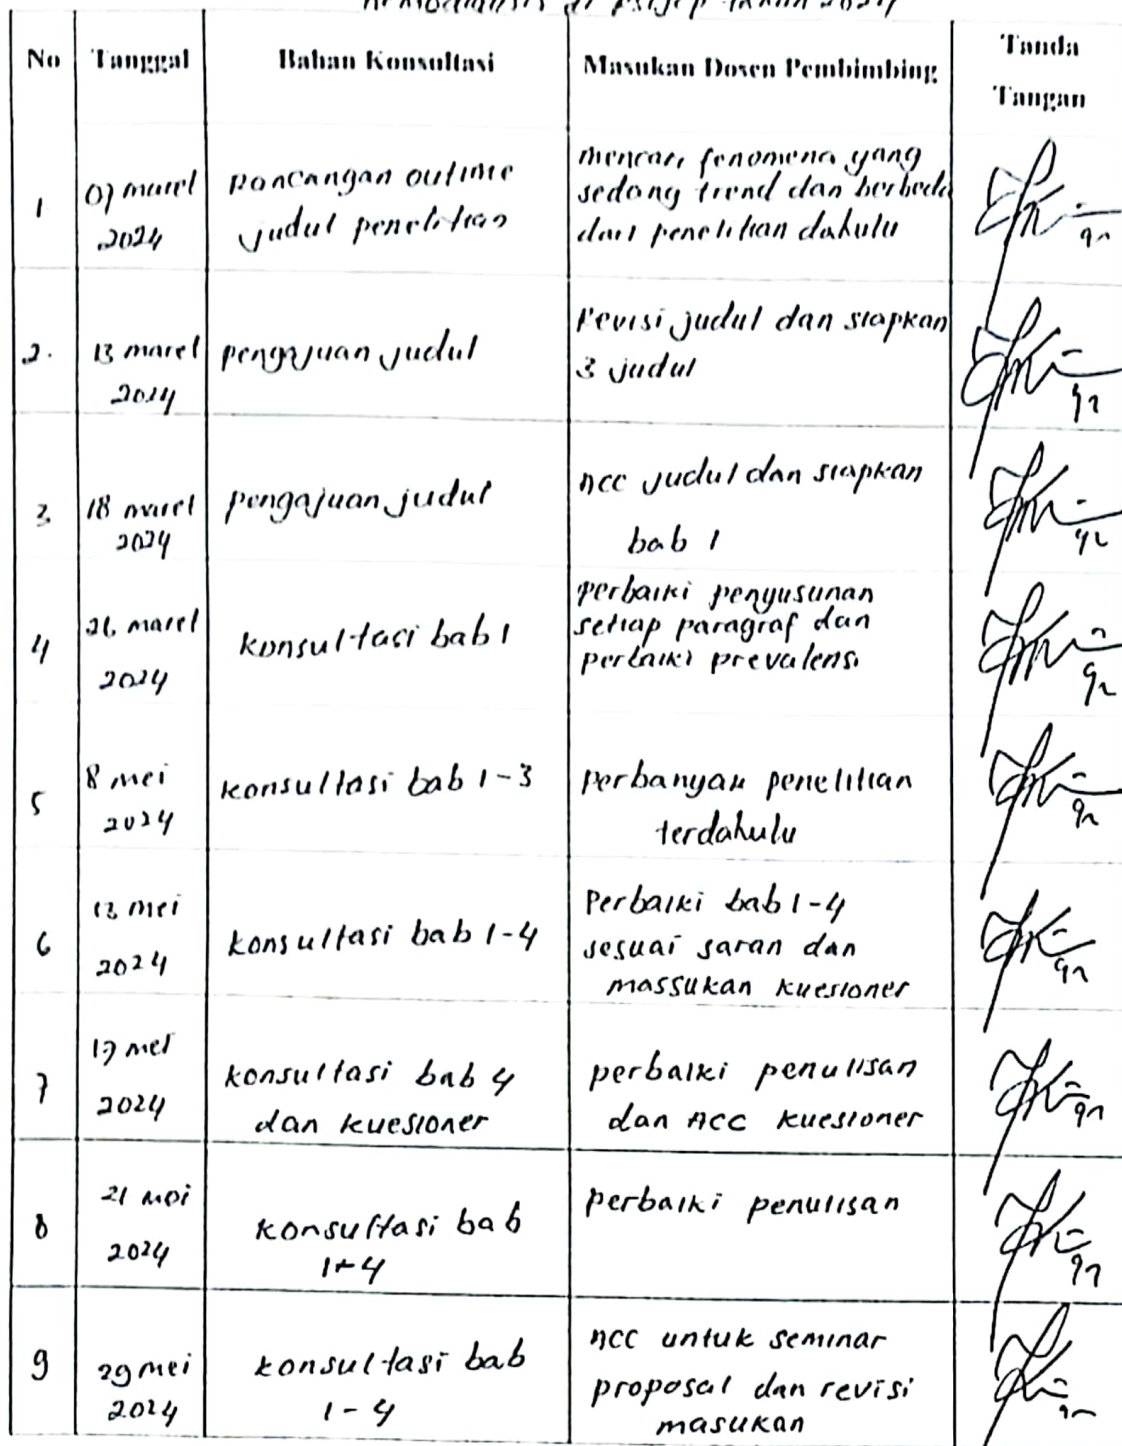 tahun 2024
No Tanggal Bahan Konsultasi Masukan Dosen Pembimbing Tanda
Tangan
1 07 maret
2024
Rancangan outline
judul penelitian
mencari fenomena yang
sedang trend dan berbeda
dari penelitian dahulu
2. 13 maret
2024
pengajuan judul
Revisi judul dan siapkan
3 judul
3 18 maret
2024
pengajuan judul
Acc judul dan siapkan
bab 1
4 26 maret
2024
konsultasi bab 1
perbaiki penyusunan
setiap paragraf dan
perbaiki prevalensi
5 8 mei
2024
konsultasi bab 1-3
perbanyak penelitian
terdahulu
6 13 mei
2024
konsultasi bab 1-4
Perbaiki bab 1-4
sesuai saran dan
massukan kuesioner
7 17 mei
2024
konsultasi bab 4
dan kuesioner
perbaiki penulisan
dan ACC kuesioner
8 21 mei
2024
konsultasi bab
1-4
perbaiki penulisan
9 29 mei
2024
konsultasi bab
1-4
ACC untuk seminar
proposal dan revisi
masukan